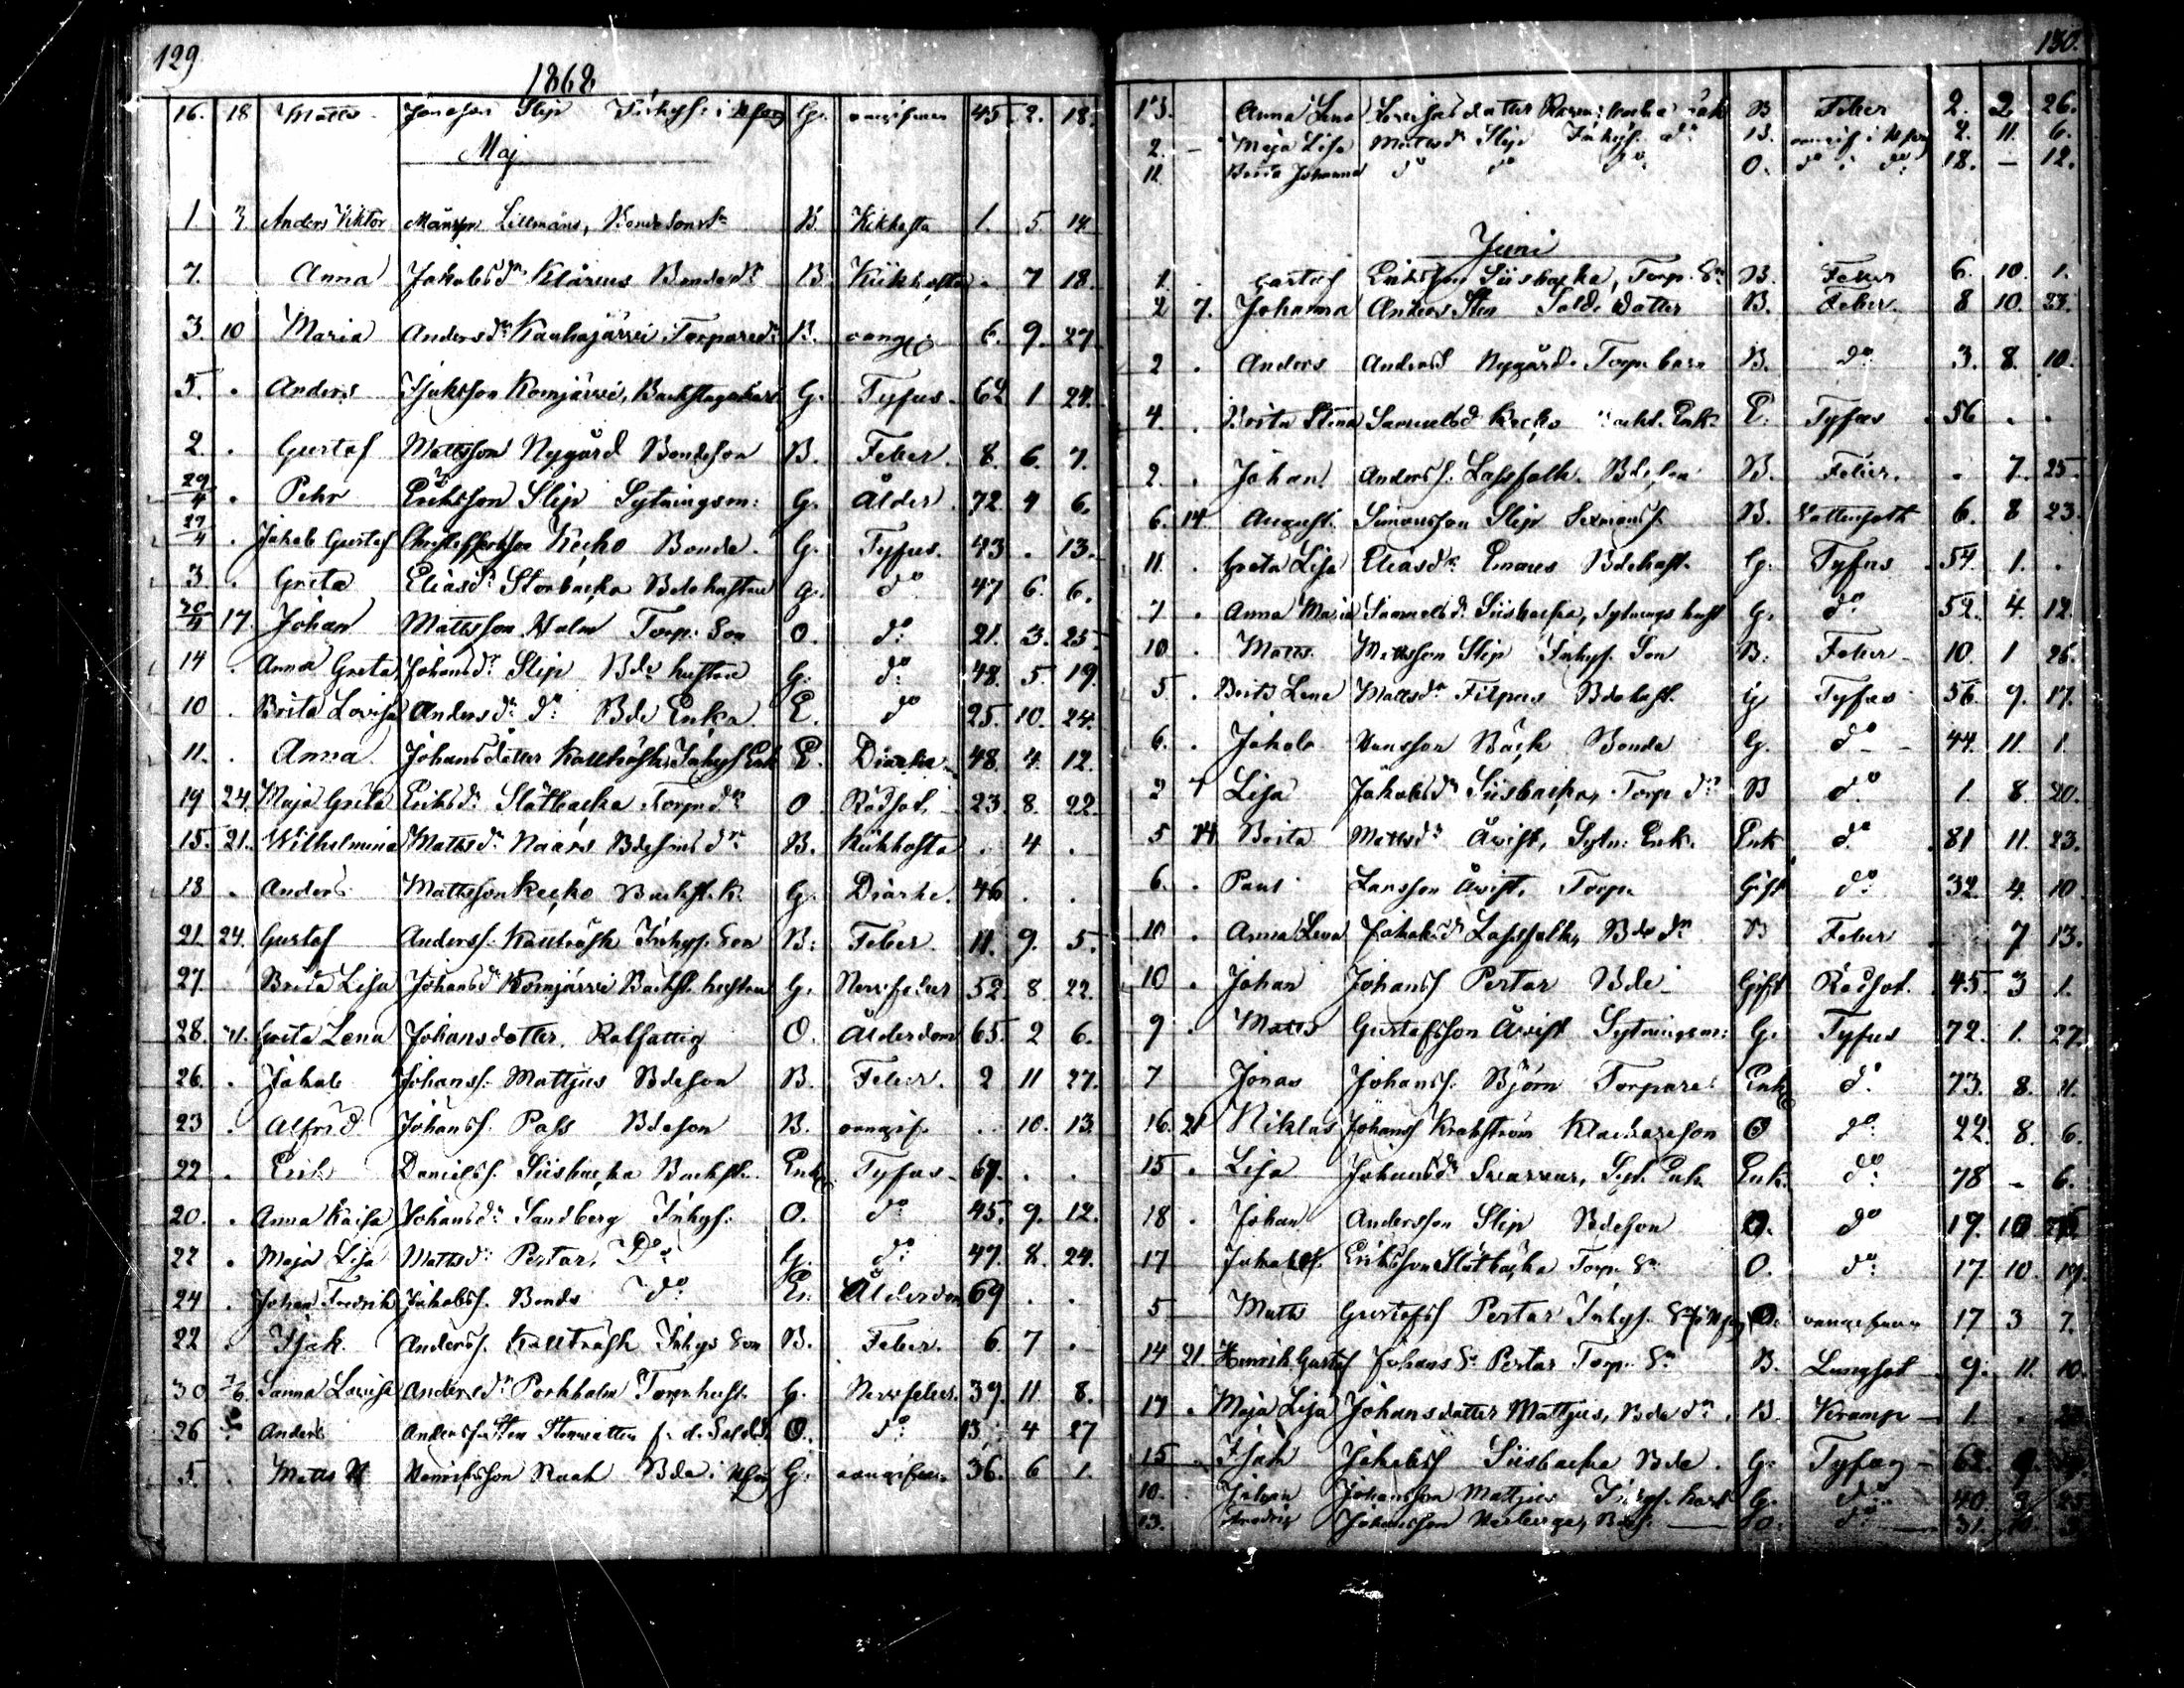 129
1868
16. 18 Matts Jonasson Slip Inhys: i G. 45. 2. 18.
Maj
1. 3. Anders Viktor Månsson Lillmåns, Bondesons Sn B. Kikhosta 1. 5 14
7. Anna Jakobsdr Klåreus Bondedr B. Kikhosta . 7 18.
3. 10 Maria Andersdr Kauhajärvi Torparedr B. 6. 9. 27
5. . Anders Isaksson Komjärvi, G. Tyfus. 62 1 24.
2. . Gustaf Mattsson Nygård Bondeson B. Feber. 8. 6. 7.
29/4 . Pehr Eriksson Slip Sytningsm: G. Ålder 72 4 6.
27/4 . Jakob Gustaf Christoffersson Kecko Bonde. G. Tyfus. 43 . 13.
3 . Greta Eliasdr Storbacka Bdehustru G. do 47 6. 6.
30/4 17. Johan Mattsson Holm Torp. Son O. do: 21. 3. 25.
14 . Anna Greta Johansdr Slip Bde hustru G. do: 48. 5. 19.
10 . Brita Lovisa Andersdr do: Bde Enka. E. do 25. 10. 24.
11. . Anna Johansdotter Kallträsk Inhys Enk E. Diarhe 48. 4. 12.
19 24. Maja Greta Eriksdr Slätbacka Torp. dr O Rödsot. 23. 8. 22.
15. 21. Wilhelmina Mattsdr Naars Bdesons dr B. Kikhosta . 4 .
18 . Anders Mattsson Kecko Backst.k. G. Diarhe. 46 . .
21 24. Gustaf Anderss. Kallträsk Inhys. Son B. Feber. 11. 9. 5.
27 Brita Lisa Johansdr Komjärvi Backst. hustru G. Nervfeber 52. 8 22.
28. Greta Lena Johansdotter. Rotfattig O. Ålderdom 65. 2 6.
26. . Jakob Johanss. Mattjus Bdeson B. Feber. 2 11 27.
23 . Alfrid Johanss. Pass Bdeson B. oangif. . 10. 13
22 . Erik Danielss. Siisbacka Backst. Enk Tyfus. 67. . .
20. . Anna Kaisa Johansdr Sandberg Inhys: O. do 45. 9. 12.
22 . Maja Lisa Mattsdr Pertar, Do: G. do: 47. 8. 24.
24 . Johan Fredrik Jakobss. Bonds do En. Ålderdom 69 . .
22 . Isak. Anderss. Kallträsk Inhys Son B. Feber. 6 7 .
30 Sanna Lovisa Andersdr Porkholm Torp. hust. G. Nervfeber. 39. 11 8.
26 Anders Anderss. Sten O. do: 13. 4 27
5. . Matts Henriksson Raak Bde i G. oangifven 36. 6 1.
130.
13. Anna Lena B Feber 2. 2. 26.
2. - Maja Lisa Mattsdr Slip Inhys. dr B. 2. 11. 6.
11 Brita Johanna do do do O. do i do: 18. - 12.
Juni
1. . Gustaf Eriksson Siisbacka, Torp. Sn B. Feber 6. 10. 1.
2 7. Johanna Anders Sten Sold. dotter B. Feber. 8 10. 23.
2 . Anders Anderss Nygård. Torp. barn B. do 3. 8. 10.
4. . Brita Stina Samuelsd Kecko Backst. Enk. E. Tyfus 56 . .
2. . Johan Anderss. Lassfolk. Bdeson B. Feber. . 7. 25
6. 14. August. Simonsson Slip B. Vattusot 6. 8 23.
11. . Greta Lisa Eliasdr Emaus Bdehust. G. Tyfus 54. 1. .
7 . Anna Maja Samuelsdr Siisbacka, Sytnings hust G. do: 52. 4. 12.
10 . Matts Mattsson Slip Inhys. Son B. Feber 10. 1 26.
5. . Brita Lena Mattsdr Filpus Bdehust. G Tyfus 56. 9. 17.
6. . Jakob Hansson Bäck Bonde G. do 44. 11. 1
2 7 Lisa Jakobsdr Siisbacka, Torp. dr B do 1. 8. 20.
5 14 Brita Mattsdr Åvist, Sytn: Enk. Enk do 81 11. 23.
6. . Paul Larsson Åvist, Torp. Gift do: 32. 4. 10
10 . Anna Lena Jakobsdr Lassfolk, Bde dr B Feber 7 13.
10 . Johan Johanss Pertar Bde Gift Rödsot. 45. 3 1.
9 . Matts Gustafsson Åvist Sytningsm: G. Tyfus 72. 1. 27
7 Jonas Johanss. Björn Torpare Enk do: 73. 8. 11.
16. 21 Niklas Johanss Krakström Klockareson O do: 22. 8. 6.
15 . Lisa Johansdr Svarvar, Syt. Enk Enk. do: 78 - 6.
18 . Johan Andersson Slip Bdeson O. do 17. 10
17 Jakob Eriksson Slätbacka Torp. Sn O. do: 17. 10. 19.
5 Matts Gustafss Pertar Inhys. O. oangifven 17 3 7.
14 21. Henrik Gustaf Johans Sn Pertar Torp. Sn B. Lungsot 9. 11. 10.
17 . Maja Lisa Johansdotter Mattjus, Bde dr. B. Kramp 1.
15 . Isak Jakobss Siisbacka Bde. G. Tyfus 62.
10. . Johan Johansson Mattjus Inhys. karl G. do: 40.
13. Johansson O. do 31.